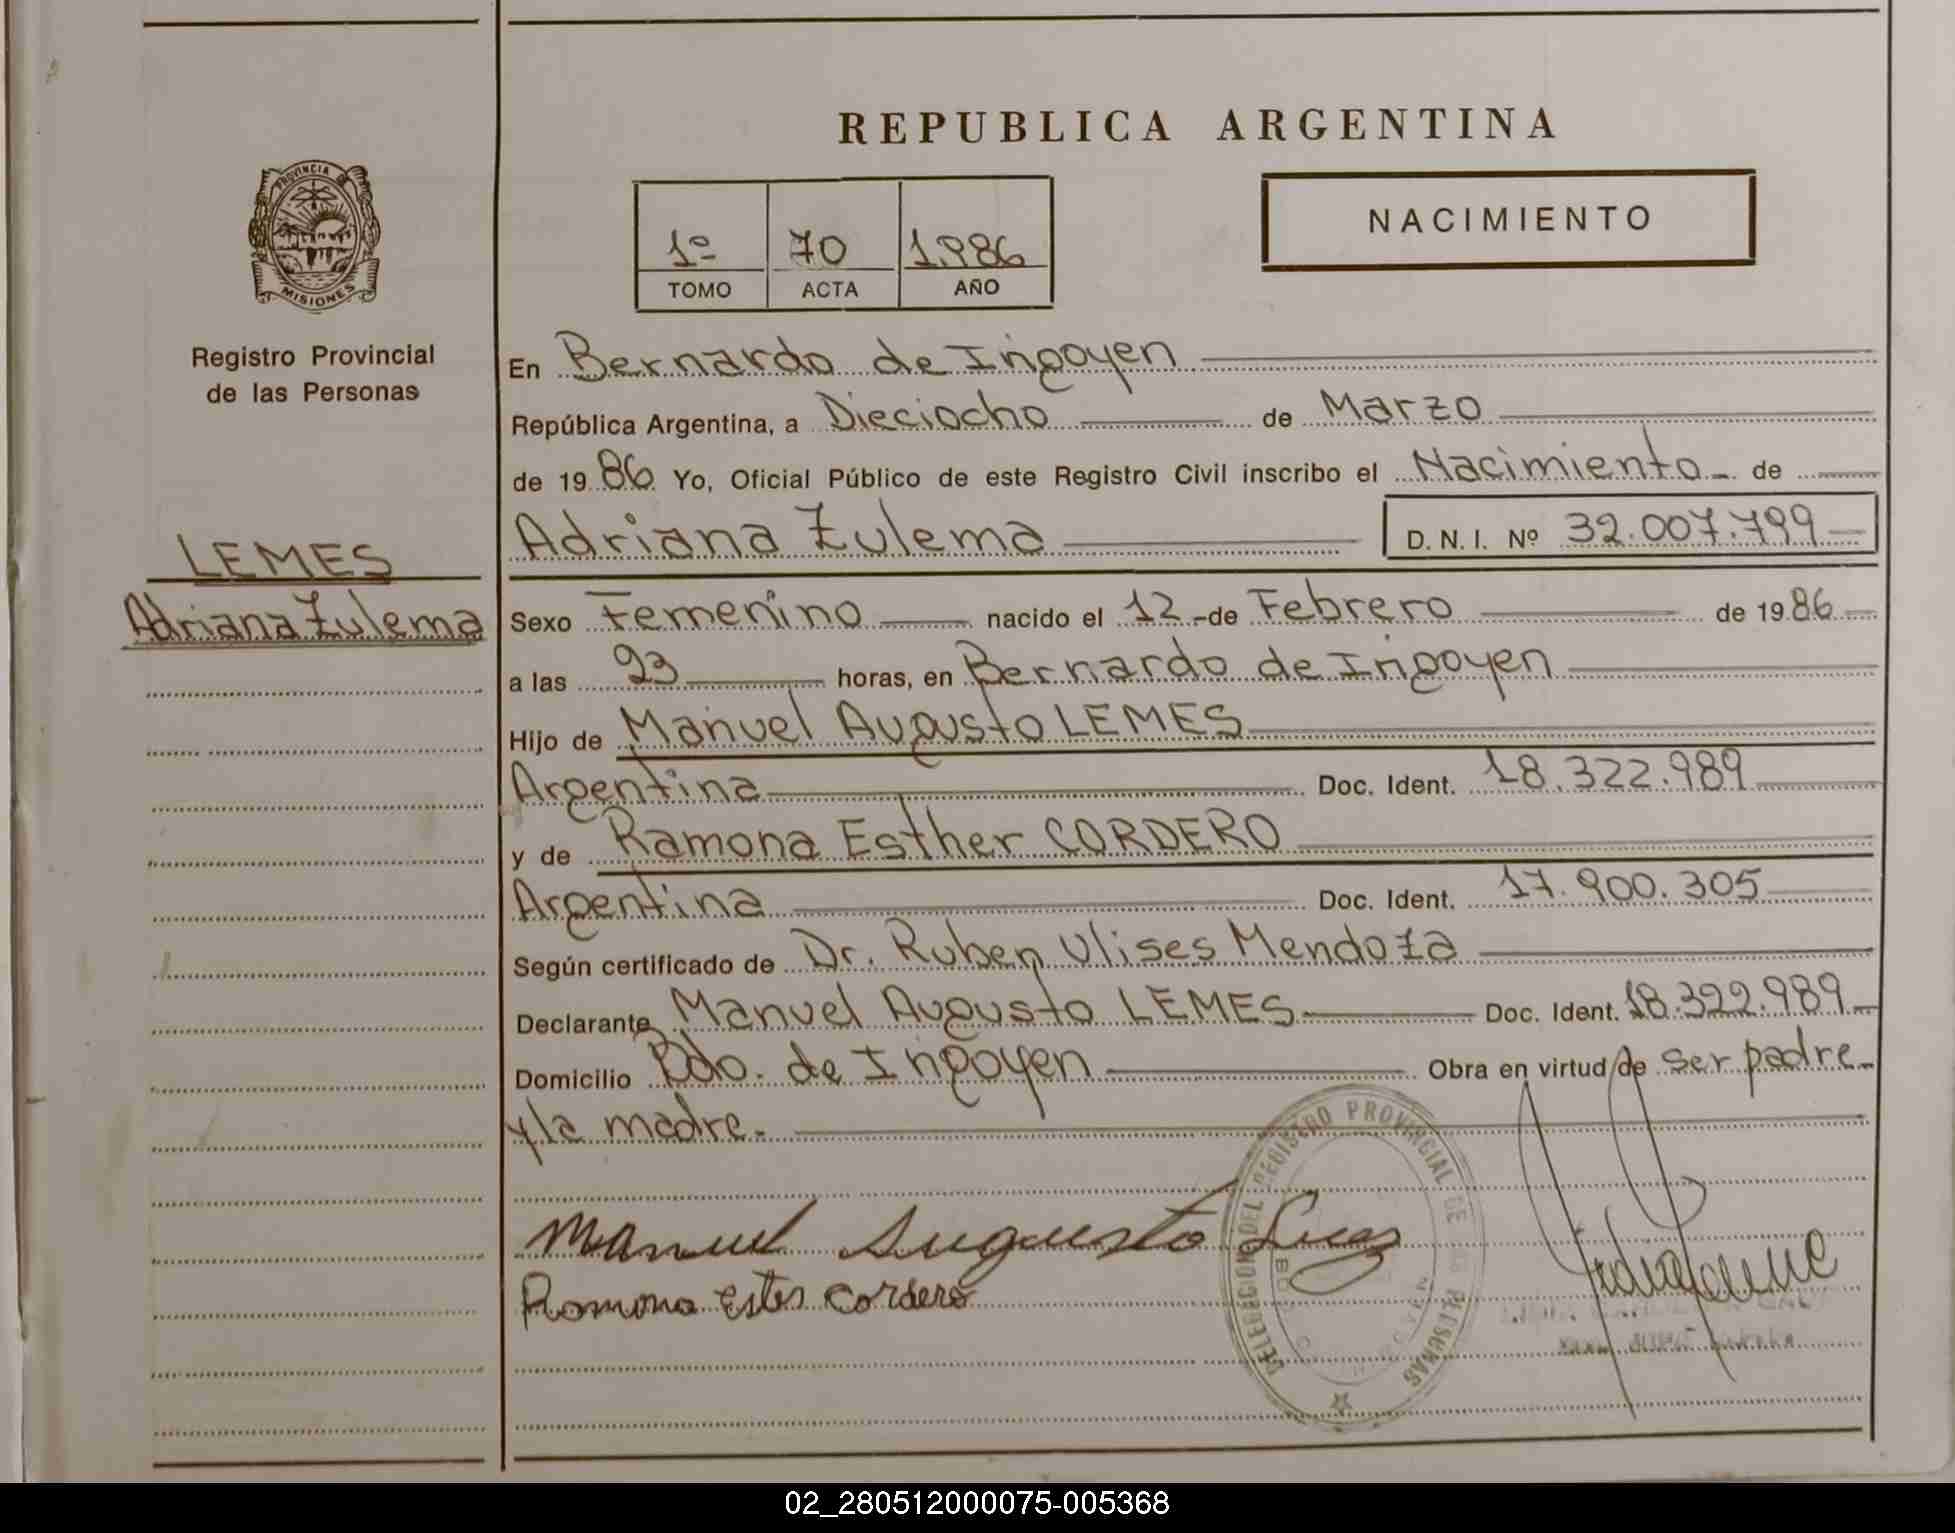 REPUBLICA ARGENTINA
PROVINCIA DE
MISIONES
Registro Provincial
de las Personas
1º 70 1.986
TOMO ACTA AÑO
NACIMIENTO
En Bernardo de Irigoyen
República Argentina, a Dieciocho de Marzo
de 1986 Yo, Oficial Público de este Registro Civil inscribo el Nacimiento de
Adriana Zulema D. N. I. Nº 32.007.799
LEMES
Adriana Zulema
Sexo Femenino nacido el 12 - de Febrero de 1986
a las 23 horas, en Bernardo de Irigoyen
Hijo de Manuel Augusto LEMES
Argentina Doc. Ident. 18.322.989
y de Ramona Esther CORDERO
Argentina Doc. Ident. 17.900.305
Según certificado de Dr. Ruben Ulises Mendoza
Declarante Manuel Augusto LEMES Doc. Ident. 18.322.989
Domicilio Bdo. de Irigoyen Obra en virtud de ser padre
y la madre.
Manuel Augusto
Ramona Ester Cordero
DELEGACION DEL REGISTRO PROVINCIAL DE LAS PERSONAS
02_280512000075-005368